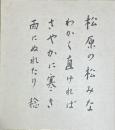 松原の松みな
わかく直ければ
さやかに寒き
雨にぬれたり 稔